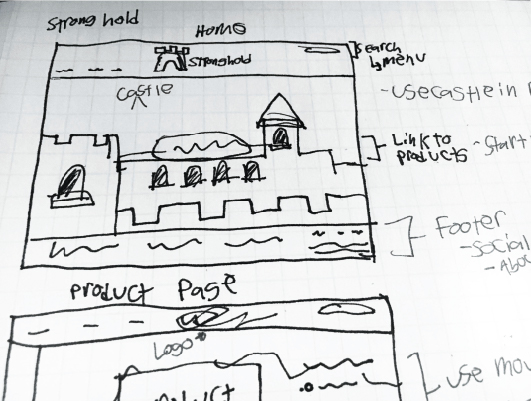 Strong hold
Home
Stronghold
Search
menu
Castle
- use castle in
Link to
products
- Start
Footer
- Social
- Abo
Product Page
Logo
use mou